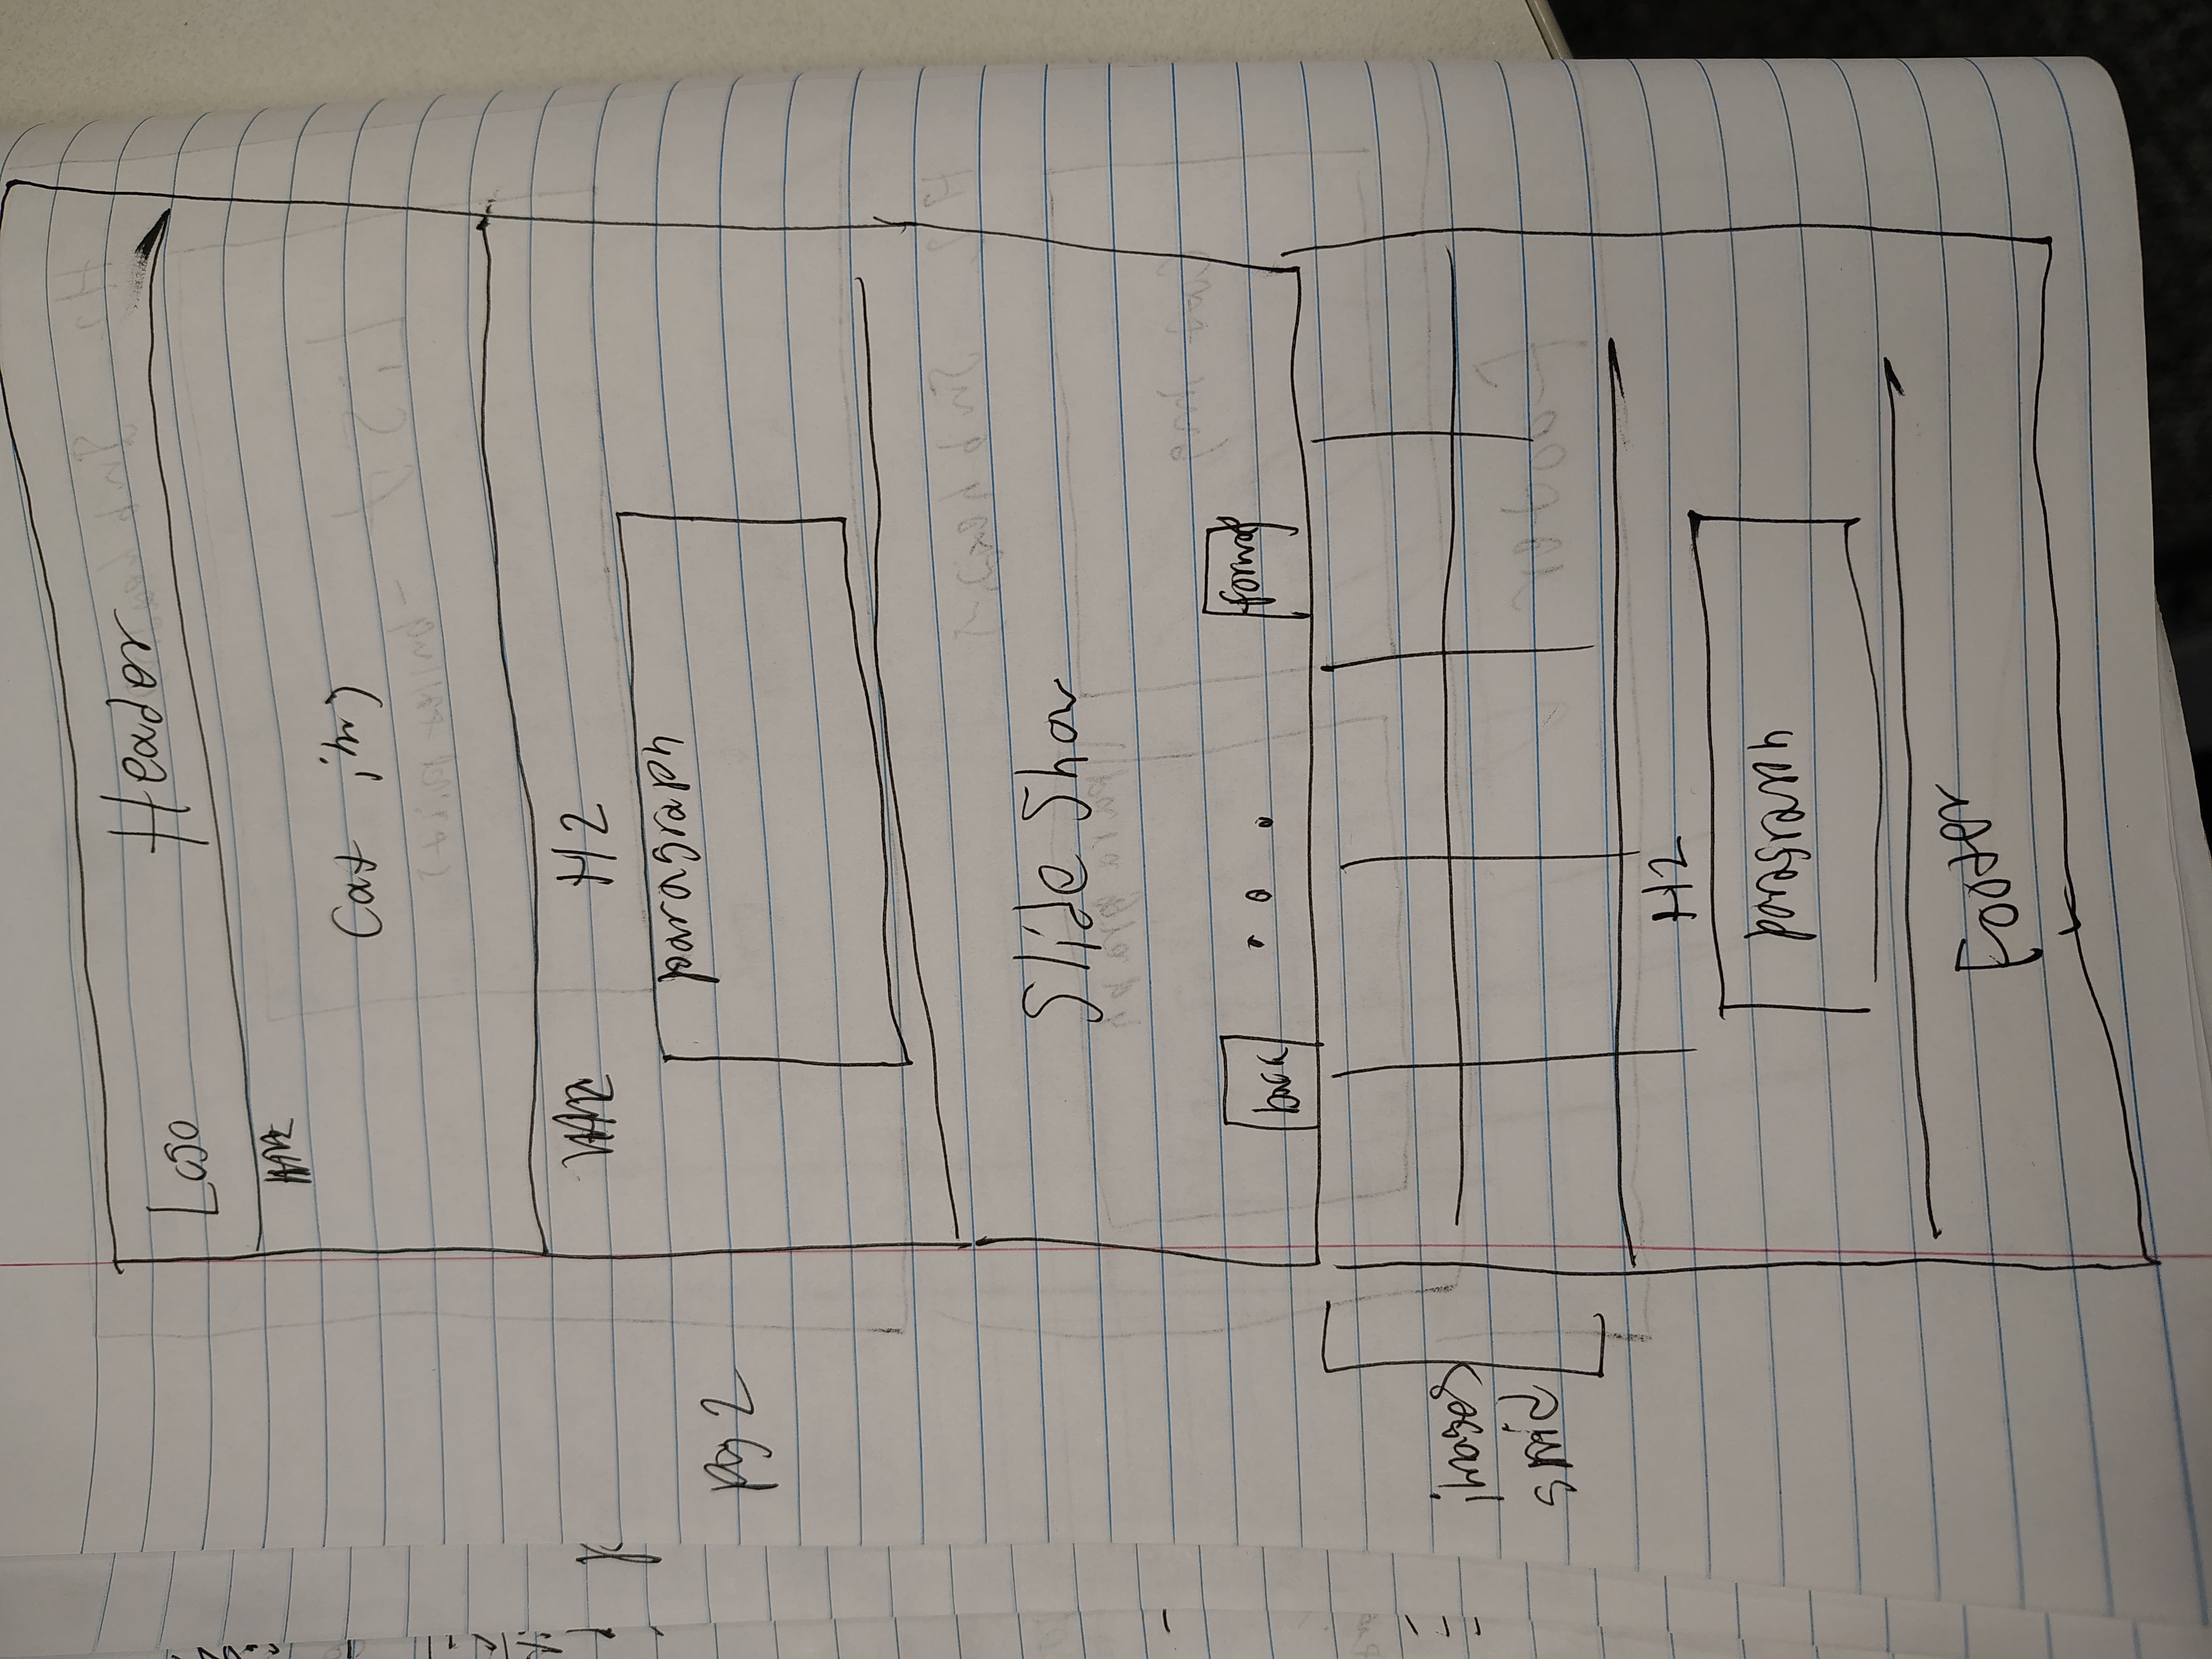 Logo Header
Cat img
H2
paragraph
pg 2
Slide Show
back
forward
images
grid
H2
paragraph
Footer